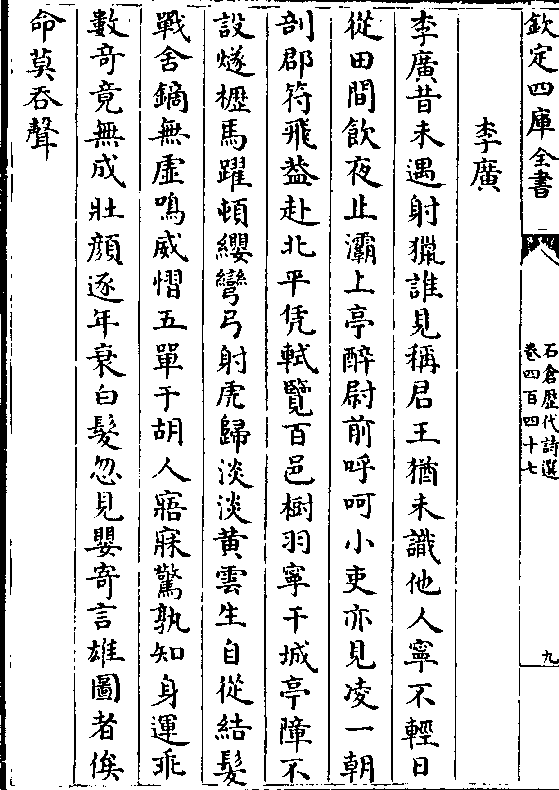 欽定四庫全書
石倉歷代詩選
卷四百四十七
九
李廣
李廣昔未遇射獵誰見稱君王猶未識他人寧不輕日
從田間飲夜止灞上亭醉尉前呼呵小吏亦見凌一朝
剖郡符飛葢赴北平凭軾覽百邑樹羽寧干城亭障不
設燧櫪馬躍頓纓彎弓射虎歸淡淡黄雲生自從結髮
戰舍鏑無虛鳴威慴五單于胡人寤寐驚孰知身運乖
數奇竟無成壯顔逐年衰白髮忽見嬰寄言雄圖者俟
命莫吞聲